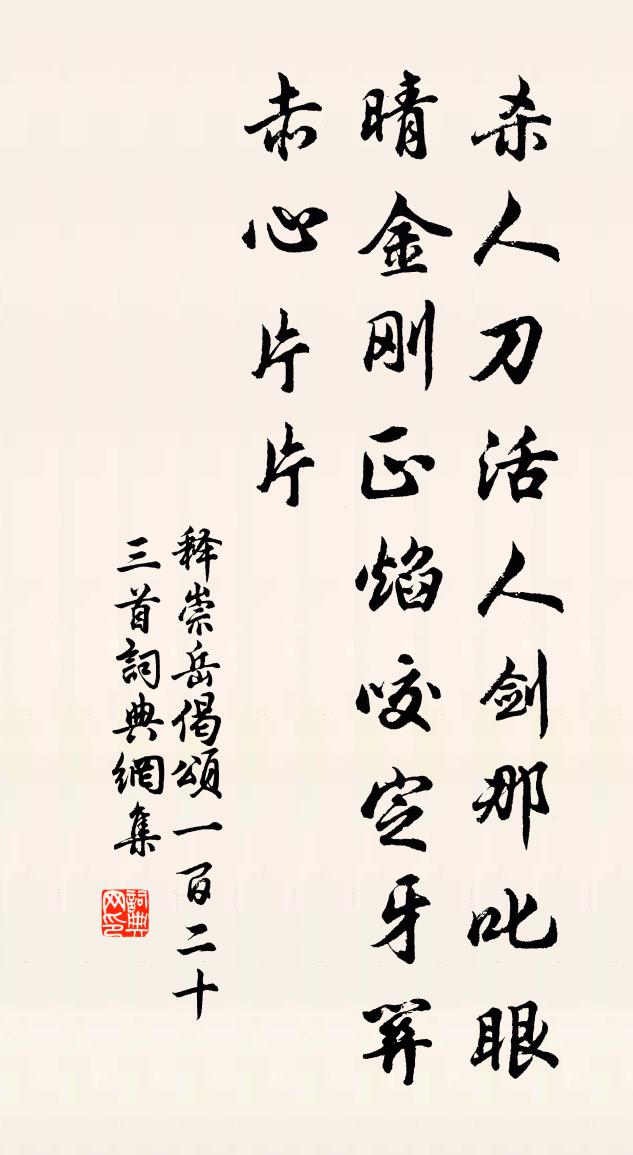 杀人刀活人剑那叱眼
晴金刚正焰咬定牙关
赤心片片
释崇岳偈頌一百二十
三首詞典網集
詞典
网印